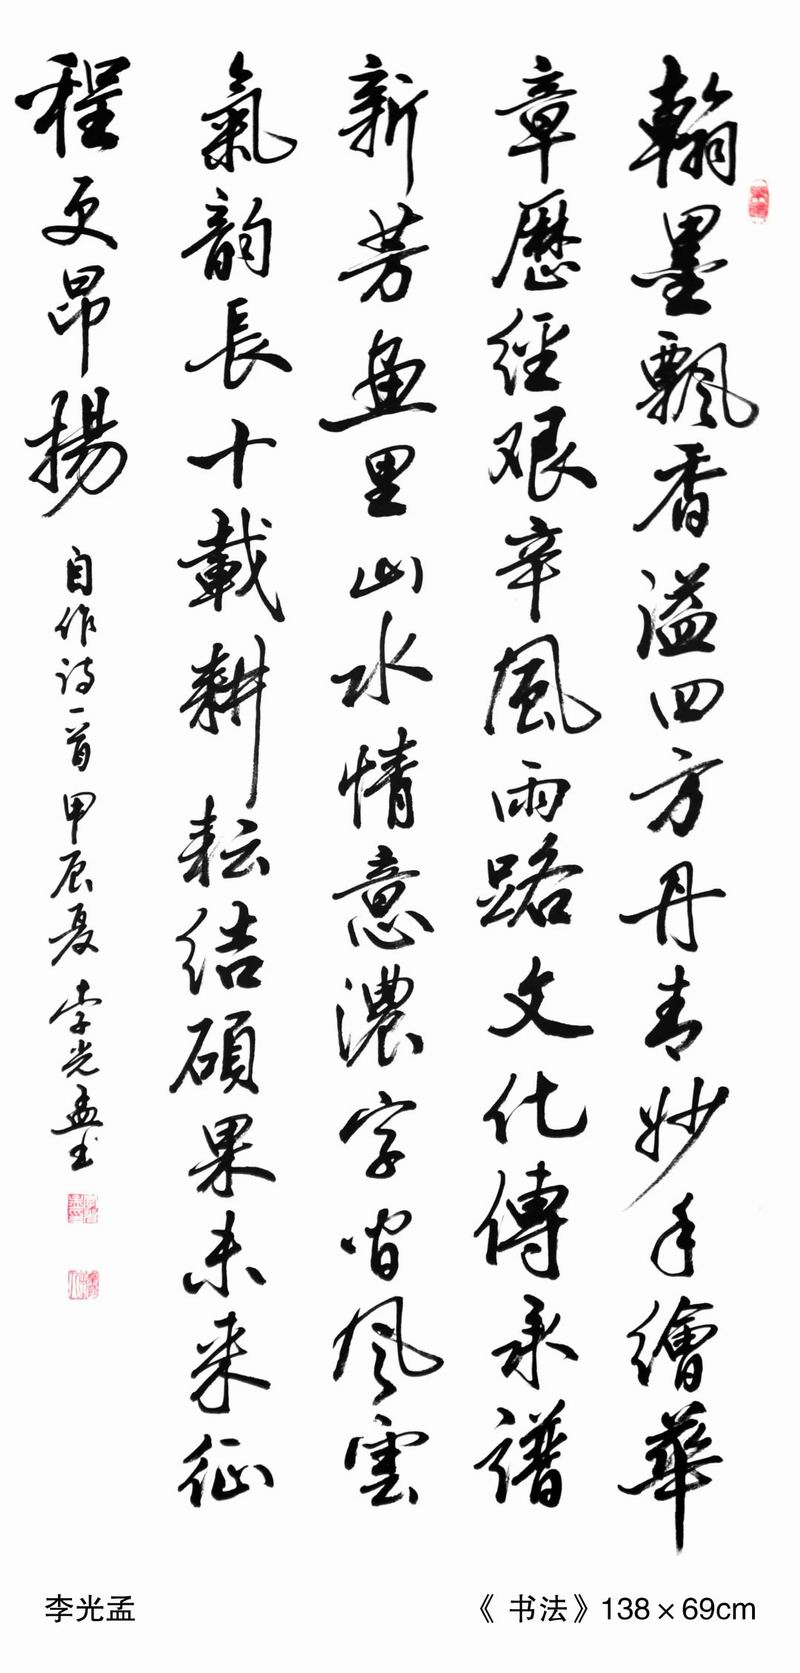 翰墨飘香溢四方丹青妙手绘華
章歷經艰辛風雨路文化傳承譜
新芳画里山水情意濃字间风雲
氣韵長十載耕耘结碩果未来征
程更昂揚
自作诗一首甲辰夏李光孟书
李光孟
《书法》138×69cm